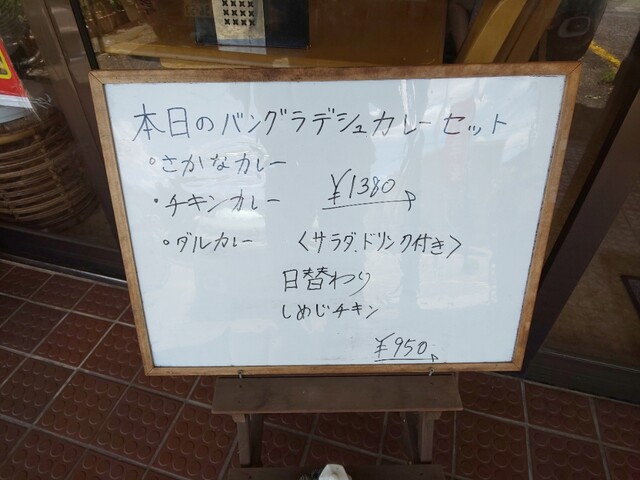 本日のバングラデシュカレーセット
・さかなカレー
・チキンカレー ¥1380
・ダルカレー 〈サラダ、ドリンク付き〉
日替わり
しめじチキン
¥950